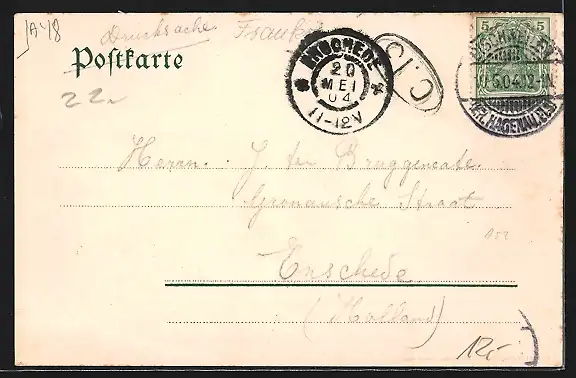 JA48
Drucksache
Postkarte
22
ENSCHEDE
20
MEI
04
11-12V
5 5
Herrn J. ter Bruggencate
Gronausche Straat
Enschede
(Holland)
12,-